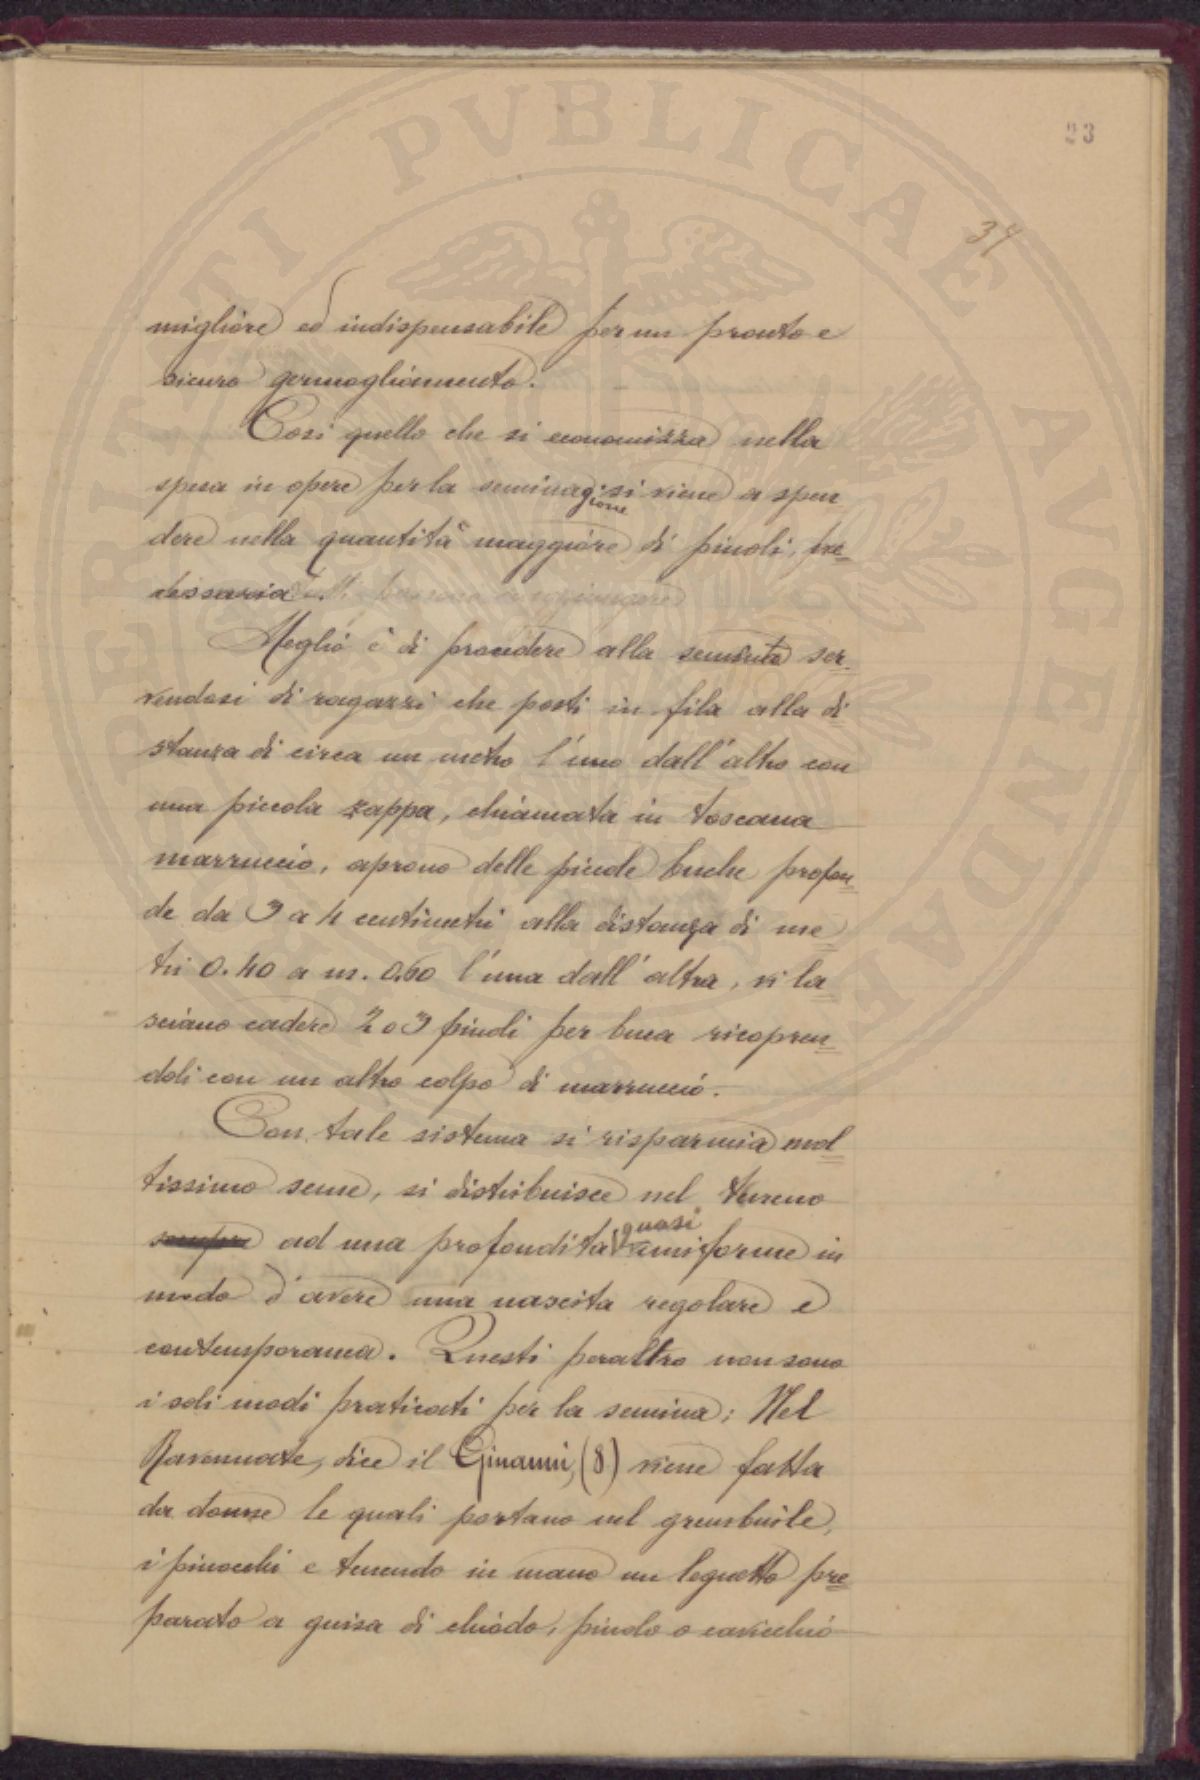 23
34
migliore ed indispensabile per un pronto e
sicuro germogliamento.
Così quello che si economizza nella
spesa in opere per la seminagione si viene a spen
dere nella quantità maggiore di pinoli, ne=
cessaria.
Meglio è di procedere alla semina ser=
vendosi di ragazzi che posti in fila alla di
stanza di circa un metro l'uno dall'altro con
una piccola zappa, chiamata in toscana
marruccio, aprono delle piccole buche profon=
de da 3 a 4 centimetri alla distanza di me
tri 0.40 a m. 0.60 l'una dall'altra, vi la
sciano cadere 2 o 3 pinoli per buca ricopren=
doli con un altro colpo di marruccio.
Con tale sistema si risparmia mol=
tissimo seme, si distribuisce nel terreno
sempre ad una profondità quasi uniforme in
modo d'avere una nascita regolare e
contemporanea. Questi peraltro non sono
i soli modi praticati per la semina; Nel
Ravennate, dice il Ginanni, (8) viene fatta
da donne le quali portano nel grembiule,
i pinocchi e tenendo in mano un legnetto pre=
parato a guisa di chiodo, pinolo o cavicchio
PERITI PVBLICAE AVGENDAE